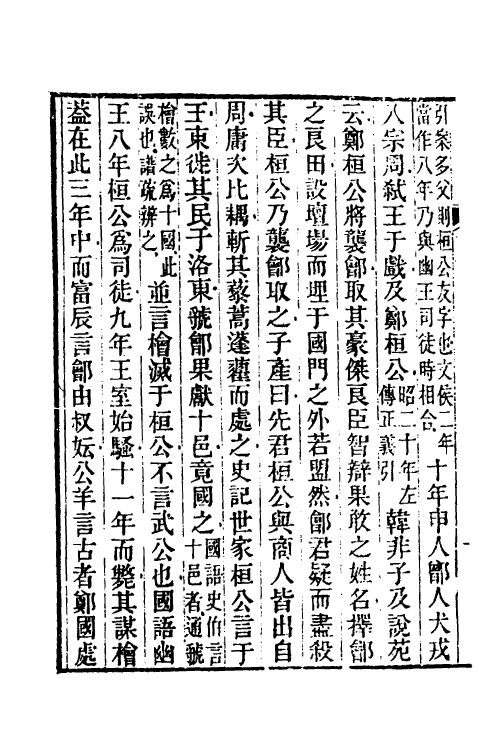 引桼多父則桓公友字也文侯二年
當作八年乃與幽王司徒時相合十年申人鄫人犬戎
入宗周弑王于戲及鄭桓公昭二十年左
傳正義引韓非子及說苑
云鄭桓公將襲鄶取其豪傑良臣智辯果敢之姓名擇鄶
之良田設壇場而埋于國門之外若盟然鄶君疑而盡殺
其臣桓公乃襲鄶取之子產曰先君桓公與商人皆出自
周庸次比耦斬其蓺蒿蓬藋而處之史記世家桓公言于
王東徙其民于洛東虢鄶果獻十邑竟國之國語史伯言
十邑者通虢
檜數之爲十國此
誤也譜疏辨之並言檜滅于桓公不言武公也國語幽
王八年桓公爲司徒九年王室始騷十一年而斃其謀檜
葢在此三年中而富辰言鄶由叔妘公羊言古者鄭國處